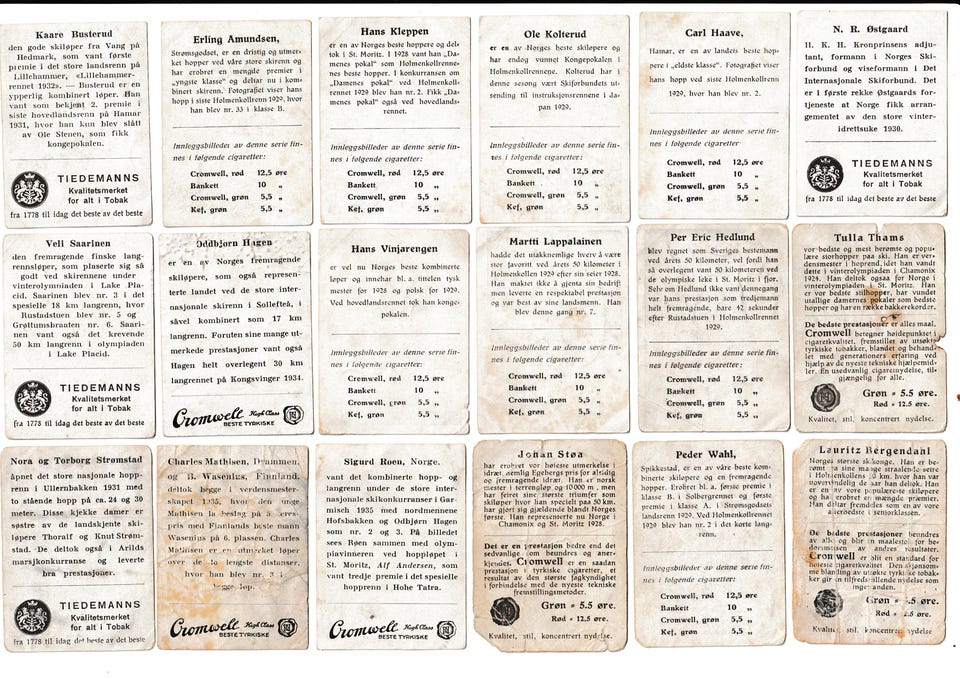 Kaare Busterud
den gode skiløper fra Vang på
Hedmark, som vant første
premie i det store landsrenn på
Lillehammer, «Lillehammer-
rennet 1932». — Busterud er en
ypperlig kombinert løper. Han
vant som bekjent 2. premie i
siste hovedlandsrenn på Hamar
1931, hvor han kun blev slått
av Ole Stenen, som fikk
kongepokalen.
TIEDEMANNS
Kvalitetsmerket
for alt i Tobak
fra 1778 til idag det beste av det beste
Erling Amundsen,
Strømsgodset, er en dristig og utmer-
ket hopper ved våre store skirenn og
har erobret en mengde premier i
"yngste klasse" og deltar nu i kom-
binert skirenn. Fotografiet viser hans
hopp i siste Holmekollrenn 1929, hvor
han blev nr. 33 i klasse B.
Innleggsbilleder av denne serie fin-
nes i følgende cigaretter:
Cromwell, rød 12,5 øre
Bankett 10 „
Cromwell, grøn 5,5 „
Kef, grøn 5,5 „
Hans Kleppen
er en av Norges beste hoppere og del-
tok i St. Moritz. I 1928 vant han „Da-
menes pokal" som Holmenkollenne-
nes beste hopper. I konkurransen om
„Damenes pokal" ved Holmenkoll-
rennet 1929 blev han nr. 2. Fikk „Da-
menes pokal" også ved hovedlands-
rennet.
Innleggsbilleder av denne serie fin-
nes i følgende cigaretter:
Cromwell, rød 12,5 øre
Bankett 10 „
Cromwell, grøn 5,5 „
Kef, grøn 5,5 „
Ole Kolterud
er en av Norges beste skiløpere og
har endog vunnet Kongepokalen i
Holmenkollrennene. Kolterud har i
denne sesong vært Skiforbundets ut-
sending til instruksjonsrennene i Ja-
pan 1929.
Innleggsbilleder av denne serie fin-
nes i følgende cigaretter:
Cromwell, rød 12,5 øre
Bankett 10 „
Cromwell, grøn 5,5 „
Kef, grøn 5,5 „
Carl Haave,
Hamar, er en av landets beste hop-
pere i „eldste klasse". Fotografiet viser
hans hopp ved siste Holmenkollrenn
1929, hvor han blev nr. 2.
Innleggsbilleder av denne serie fin-
nes i følgende cigaretter:
Cromwell, rød 12,5 øre
Bankett 10 „
Cromwell, grøn 5,5 „
Kef, grøn 5,5 „
N. R. Østgaard
H. K. H. Kronprinsens adju-
tant, formann i Norges Ski-
forbund og viseformann i Det
Internasjonale Skiforbund. Det
er i første rekke Østgaards for-
tjeneste at Norge fikk arran-
gementet av den store vinter-
idrettsuke 1930.
TIEDEMANNS
Kvalitetsmerket
for alt i Tobak
fra 1778 til idag det beste av det beste
Veli Saarinen
den fremragende finske lang-
rennsløper, som plaserte sig så
godt ved skirennene under
vinterolympiaden i Lake Pla-
cid. Saarinen blev nr. 3 i det
spesielle 18 km langrenn, hvor
Rustadstuen blev nr. 5 og
Grøttumsbraaten nr. 6. Saari-
nen vant også det krevende
50 km langrenn i olympiaden
i Lake Placid.
TIEDEMANNS
Kvalitetsmerket
for alt i Tobak
fra 1778 til idag det beste av det beste
Oddbjørn Hagen
er en av Norges fremragende
skiløpere, som også represen-
terte landet ved de store inter-
nasjonale skirenn i Sollefteå, i
såvel kombinert som 17 km
langrenn. Foruten sine mange ut-
merkede prestasjoner vant også
Hagen helt overlegent 30 km
langrennet på Kongsvinger 1934.
Cromwell High Class
BESTE TYRKISKE
Hans Vinjarengen
er vel nu Norges beste kombinerte
løper og innehar bl. a. titelen tysk
mester for 1928 og polsk for 1929.
Ved hovedlandsrennet tok han konge-
pokalen.
Innleggsbilleder av denne serie fin-
nes i følgende cigaretter:
Cromwell, rød 12,5 øre
Bankett 10 „
Cromwell, grøn 5,5 „
Kef, grøn 5,5 „
Martti Lappalainen
hadde det utakknemlige hverv å være
stor favorit ved årets 50 kilometer i
Holmenkollen 1929 efter sin seier 1928.
Han maktet ikke å gjenta sin bedrift
men leverte en respektabel prestasjon
og var best av sine landsmenn. Han
blev denne gang nr. 7.
Innleggsbilleder av denne serie fin-
nes i følgende cigaretter:
Cromwell, rød 12,5 øre
Bankett 10 „
Cromwell, grøn 5,5 „
Kef, grøn 5,5 „
Per Eric Hedlund
blev regnet som Sveriges bestemann
ved årets 50 kilometer, vel fordi han
så overlegent vant 50 kilometeren ved
de olympiske leke i St. Moritz i fjor.
Selv om Hedlund ikke vant denne gang
var hans prestasjon som tredjemann
helt fremragende, bare 42 sekunder
efter Rustadstuen i Holmenkollrennet
1929.
Innleggsbilleder av denne serie fin-
nes i følgende cigaretter:
Cromwell, rød 12,5 øre
Bankett 10 „
Cromwell, grøn 5,5 „
Kef, grøn 5,5 „
Tulla Thams
vor bedste og mest berømte og popu-
lære storhopper paa ski. Han er ver-
densmester i hoprend, idet han vandt
dette i vinterolympiaden i Chamonix
1924. Han deltok ogsaa for Norge i
vinterolympiaden i St. Moritz. Han
er vor bedste stilhopper, har vundet
utallige damernes pokaler som bedste
hopper og har en række bakkerekorder.
De bedste prestasjoner er alles maal.
Cromwell betegner høidepunktet i
cigaretkvalitet, fremstillet av utsøkte
tyrkiske tobakker, blandet og behand-
let med generationers erfaring ved
hjælp av de nyeste tekniske hjælpemid-
ler. En usedvanlig cigaretnydelse, til-
gjængelig for alle.
Grøn = 5.5 øre.
Rød = 12.5 øre.
Kvalitet, stil, koncentrert nydelse.
Nora og Torborg Strømstad
åpnet det store nasjonale hopp-
renn i Ullernbakken 1931 med
to stående hopp på ca. 24 og 30
meter. Disse kjekke damer er
søstre av de landskjente ski-
løpere Thoralf og Knut Strøm-
stad. De deltok også i Arilds
marsjkonkurranse og leverte
bra prestasjoner.
TIEDEMANNS
Kvalitetsmerket
for alt i Tobak
fra 1778 til idag det beste av det beste
Charles Mathisen, Drammen,
og B. Wasenius, Finnland,
deltok begge i verdensmester-
skapet 1935, hvor den unge
Mathisen la beslag på 5.
pris med Finnlands beste mann
Wasenius på 6. plassen. Charles
Mathisen er en utmerket løper
over de to lengste distanser,
hvor han blev nr. 3 i
begge løp.
Cromwell High Class
BESTE TYRKISKE
Sigurd Roen, Norge,
vant det kombinerte hopp- og
langrenn under de store inter-
nasjonale skikonkurranser i Gar-
misch 1935 med nordmennene
Hofsbakken og Odbjørn Hagen
som nr. 2 og 3. På billedet
sees Røen sammen med olym-
piavinneren ved hoppløpet i
St. Moritz, Alf Andersen, som
vant tredje premie i det spesielle
hopprenn i Hohe Tatra.
Cromwell High Class
BESTE TYRKISKE
Johan Støa
har erobret vor høieste utmerkelse i
idræt, nemlig Egebergs pris for alsidig
og fremragende idræt. Han er norsk
mester i terrengløp og 10 000 m., men
har feiret sine største triumfer som
skiløper hvor han specielt paa 50 km.
har gjort sig gjældende blandt Norges
første. Han repræsenterte nu Norge i
Chamonix og St. Moritz 1928.
Det er en prestasjon bedre end det
sedvanlige som beundres og aner-
kjendes. Cromwell er en saadan
prestasjon i tyrkiske cigaretter, et
resultat av den største fagkyndighet
i forbindelse med de nyeste tekniske
fremstillingsmetoder.
Grøn = 5.5 øre.
Rød = 12.5 øre.
Kvalitet, stil, koncentrert nydelse.
Peder Wahl,
Spikkestad, er en av våre beste kom-
binerte skiløpere og en fremragende
hopper. Erobret bl. a. første premie i
klasse B. i Solbergrennet og første
premie i klasse A. i Strømsgodsets
landsrenn 1929. Ved Holmenkollrennet
1929 blev han nr. 2 i det korte lang-
renn.
Innleggsbilleder av denne serie fin-
nes i følgende cigaretter:
Cromwell, rød 12,5 øre
Bankett 10 „
Cromwell, grøn 5,5 „
Kef, grøn 5,5 „
Lauritz Bergendahl
Norges største skikonge. Han er be-
rømt for sine mange straalende seire
i Holmenkollens 50 km. hvor han var
uovervindelig de aar han deltok. Han
er en av vore populæreste skiløpere
og har erobret en mængde præmier.
Han deltar fremdeles som en av vore
allerbedste i seniorklassen.
De bedste prestasjoner beundres
av alle og blir en maalestok for be-
dømmelsen av andres resultater.
Cromwell er blit en standard for
høieste cigaretkvalitet. Den skjønsom-
me blanding av utsøkte tyrkiske tobak-
ker gir en tilfredsstillende nydelse som
ingen anden.
Grøn = 5.5 øre.
Rød = 12.5 øre.
Kvalitet, stil, koncentrert nydelse